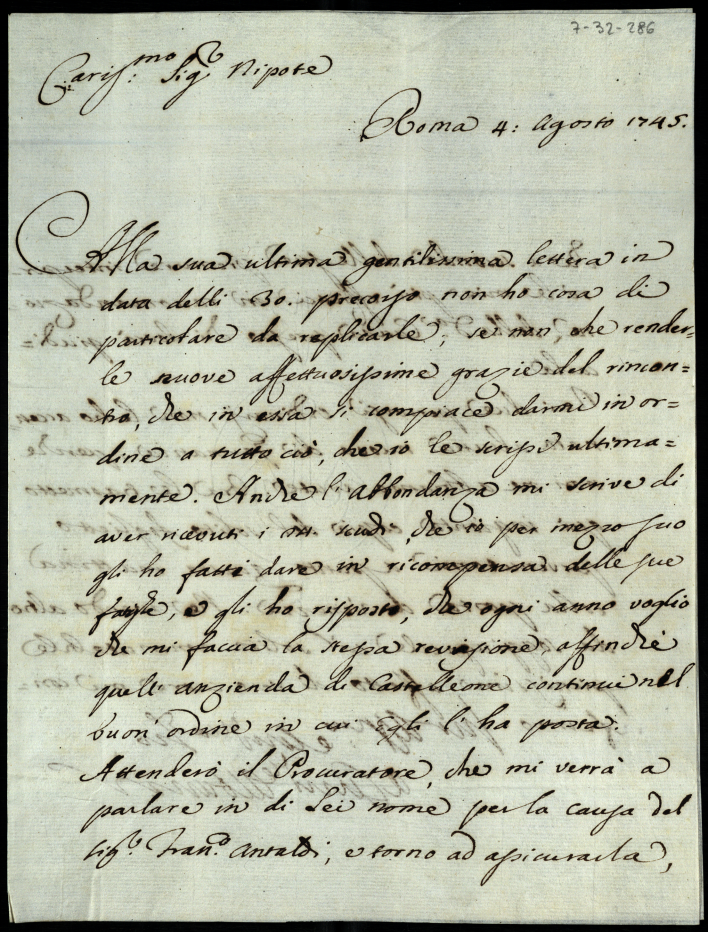 7-32-286
Cariss.mo Sig.r Nipote
Roma 4: Agosto 1745.
Alla sua ultima gentilissima lettera in
data delli 30. precorso non ho cosa di
particolare da replicarle, se non, che render=
le nuove affettuosissime grazie del rincon=
tro, che in essa si compiace darmi in or=
dine a tutto ciò, che io le scrissi ultima=
mente. Anche l'Abbondanza mi scrive di
aver ricevuti i scudi, che io per mezzo suo
gli ho fatti dare in ricompensa delle sue
fatighe, e gli ho risposto, che ogni anno voglio
che mi faccia la stessa revisione affinchè
quell'anzienda di Castelleone continui nel
buon'ordine in cui Egli l'ha posta.
Attenderò il Procuratore, che mi verrà a
parlare in di Lei nome per la causa del
Sig.r Fran.co Antaldi, e torno ad assicurarla,